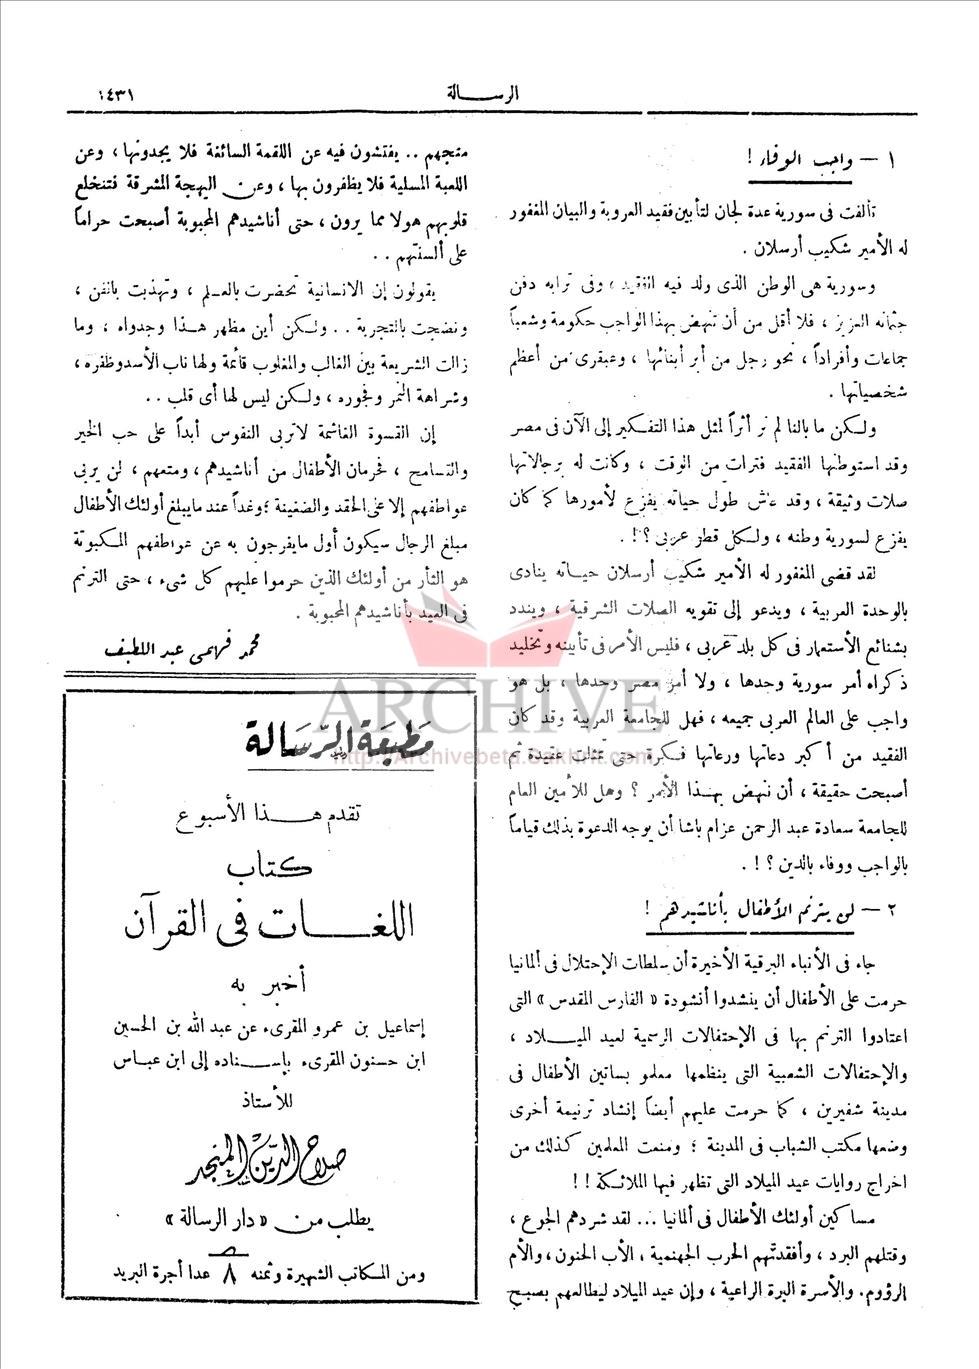 الرسالة
١٤٣١
١ — واجب الوفاء !
تألفت فى سورية عدة لجان لتأبين فقيد العروبة والبيان المغفور
له الأمير شكيب أرسلان .
وسورية هى الوطن الذى ولد فيه الفقيد ، وفى ترابه دفن
جثمانه العزيز ، فلا أقل من أن تنهض بهذا الواجب حكومة وشعباً
جماعات وأفراداً ، نحو رجل من أبر أبنائها ، وعبقرى من أعظم
شخصياتها .
ولكن ما بالنا لم نر أثراً لمثل هذا التفكير إلى الآن فى مصر
وقد استوطنها الفقيد فترات من الوقت ، وكانت له برجالاتها
صلات وثيقة ، وقد عاش طول حياته يفزع لأمورها كما كان
يفزع لسورية وطنه ، ولكل قطر عربى ؟ ! .
لقد قضى المغفور له الأمير شكيب أرسلان حياته ينادى
بالوحدة العربية ، ويدعو إلى تقويه الصلات الشرقية ، ويندد
بشنائع الأستعمار فى كل بلد عربى ، فليس الأمر فى تأبينه وتخليد
ذكراه أمر سورية وحدها ، ولا أمر مصر وحدها ، بل هو
واجب على العالم العربى جميعه ، فهل للجامعة العربية وقد كان
الفقيد من أكبر دعاتها ورعاتها فكرة حتى تمثلت عقيدة ثم
أصبحت حقيقة ، أن تنهض بهذا الأمر ؟ وهل للأمين العام
للجامعة سعادة عبد الرحمن عزام باشا أن يوجه الدعوة بذلك قياماً
بالواجب ووفاء بالدين ؟ ! .
٢ — لن يترنم الأطفال بأناشيدهم !
جاء فى الأنباء البرقية الأخيرة أن سلطات الإحتلال فى ألمانيا
حرمت على الأطفال أن ينشدوا أنشودة « الفارس المقدس » التى
اعتادوا الترنم بها فى الإحتفالات الرسمية لعيد الميلاد ،
والإحتفالات الشعبية التى ينظمها معلمو بساتين الأطفال فى
مدينة شفيرين ، كما حرمت عليهم أيضاً إنشاد ترنيمة أخرى
وضعها مكتب الشباب فى المدينة ؛ ومنعت المعلمين كذلك من
اخراج روايات عيد الميلاد التى تظهر فيها الملائكة ! !
مساكين أولئك الأطفال فى ألمانيا ... لقد شردهم الجوع ،
وقتلهم البرد ، وأفقدتهم الحرب الجهنمية ، الأب الحنون ، والأم
الرؤوم. والأسرة البرة الراعية ، وإن عيد الميلاد ليطالعهم بصبح
متجهم .. يفتشون فيه عن اللقمة السائغة فلا يجدونها ، وعن
اللعبة المسلية فلا يظفرون بها ، وعن البهجة المشرقة فتنخلع
قلوبهم هولا مما يرون ، حتى أناشيدهم المحبوبة أصبحت حراماً
على ألسنتهم ..
يقولون إن الانسانية تحضرت بالعلم ، وتهذبت بالفن ،
ونضجت بالتجربة .. ولكن أين مظهر هذا وجدواه ، وما
زالت الشريعة بين الغالب والمغلوب قائمة ولها ناب الأسد وظفره ،
وشراهة النمر وفجوره ، ولكن ليس لها أى قلب ..
إن القسوة الغاشمة لا تربى النفوس أبداً على حب الخير
والتسامح ، فحرمان الأطفال من أناشيدهم ، ومتعهم ، لن يربى
عواطفهم إلا على الحقد والضغينة ؛ وغداً عند ما يبلغ أولئك الأطفال
مبلغ الرجال سيكون أول مايفرجون به عن عواطفهم المكبوتة
هو الثأر من أولئك الذين حرموا عليهم كل شىء ، حتى الترنم
فى العيد بأناشيدهم المحبوبة .
محمد فهمى عبد اللطيف
مطبعة الرسالة
تقدم هذا الأسبوع
كتاب
اللغات فى القرآن
أخبر به
إسماعيل بن عمرو المقرىء عن عبد الله بن الحسين
ابن حسنون المقرىء بإسناده إلى ابن عباس
للأستاذ
صلاح الدين المنجد
يطلب من « دار الرسالة »
ومن المكاتب الشهيرة وثمنه ٨ عدا أجرة البريد
ARCHIVE
http://Archivebeta.Sakhrit.com